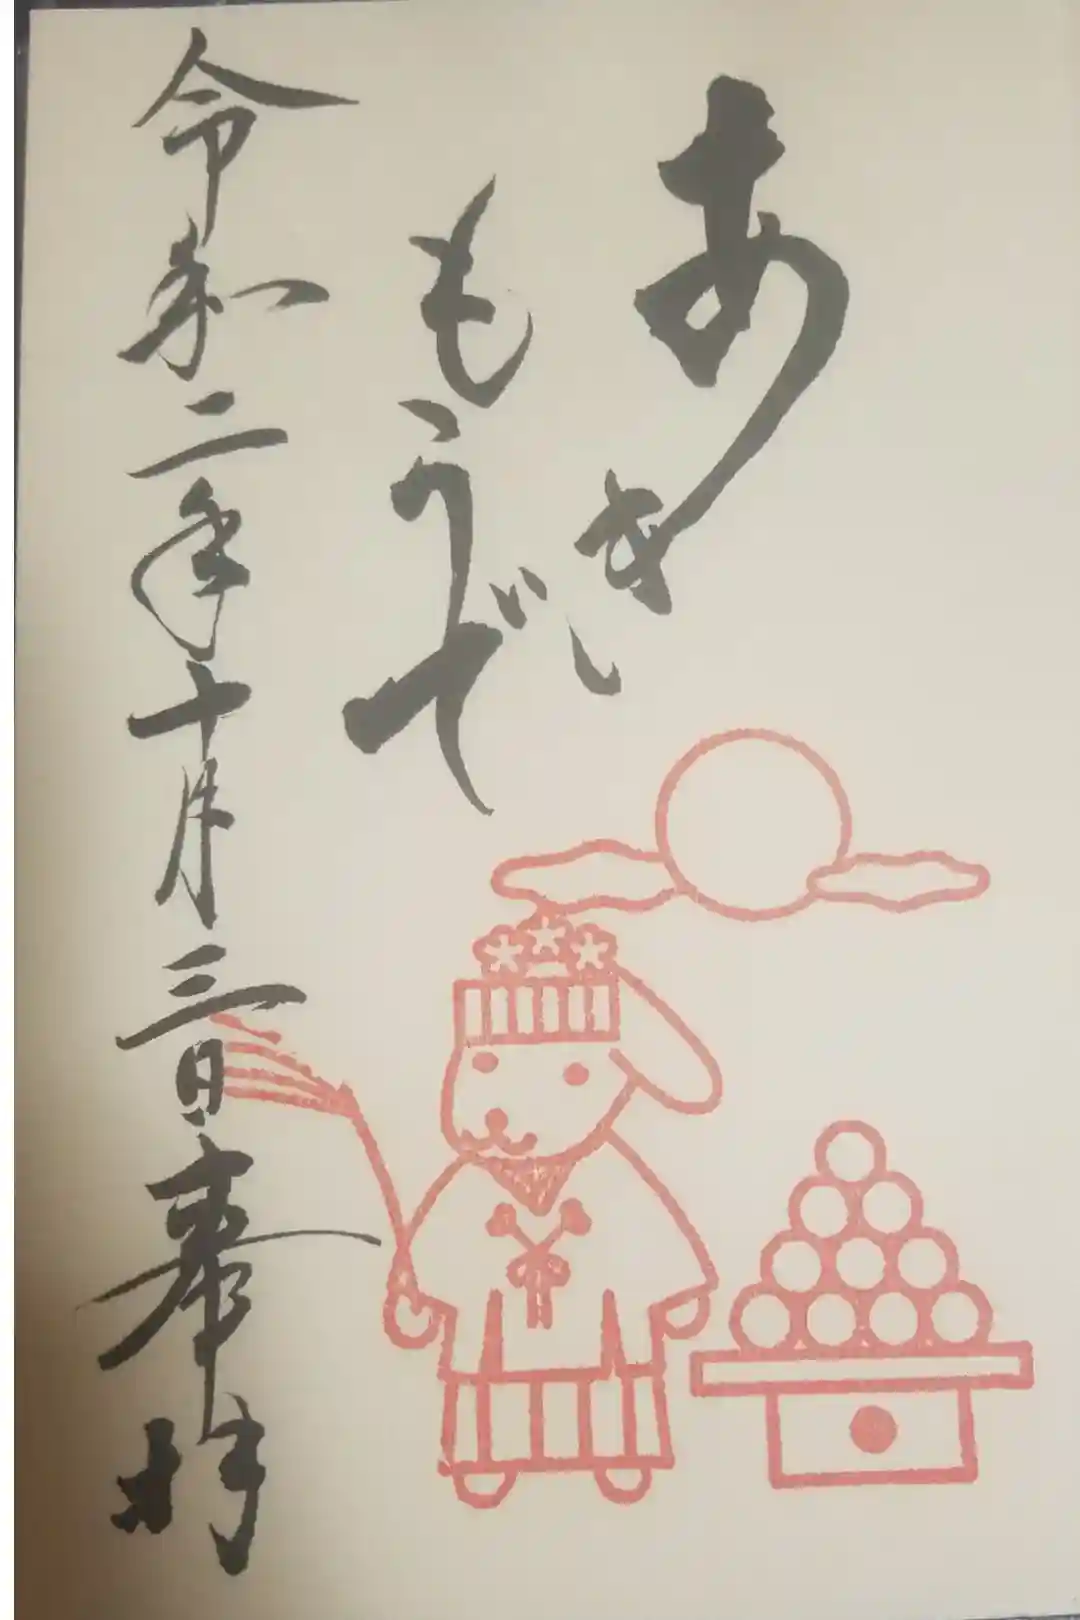 あき
もうで
令和二年十月三日奉拝